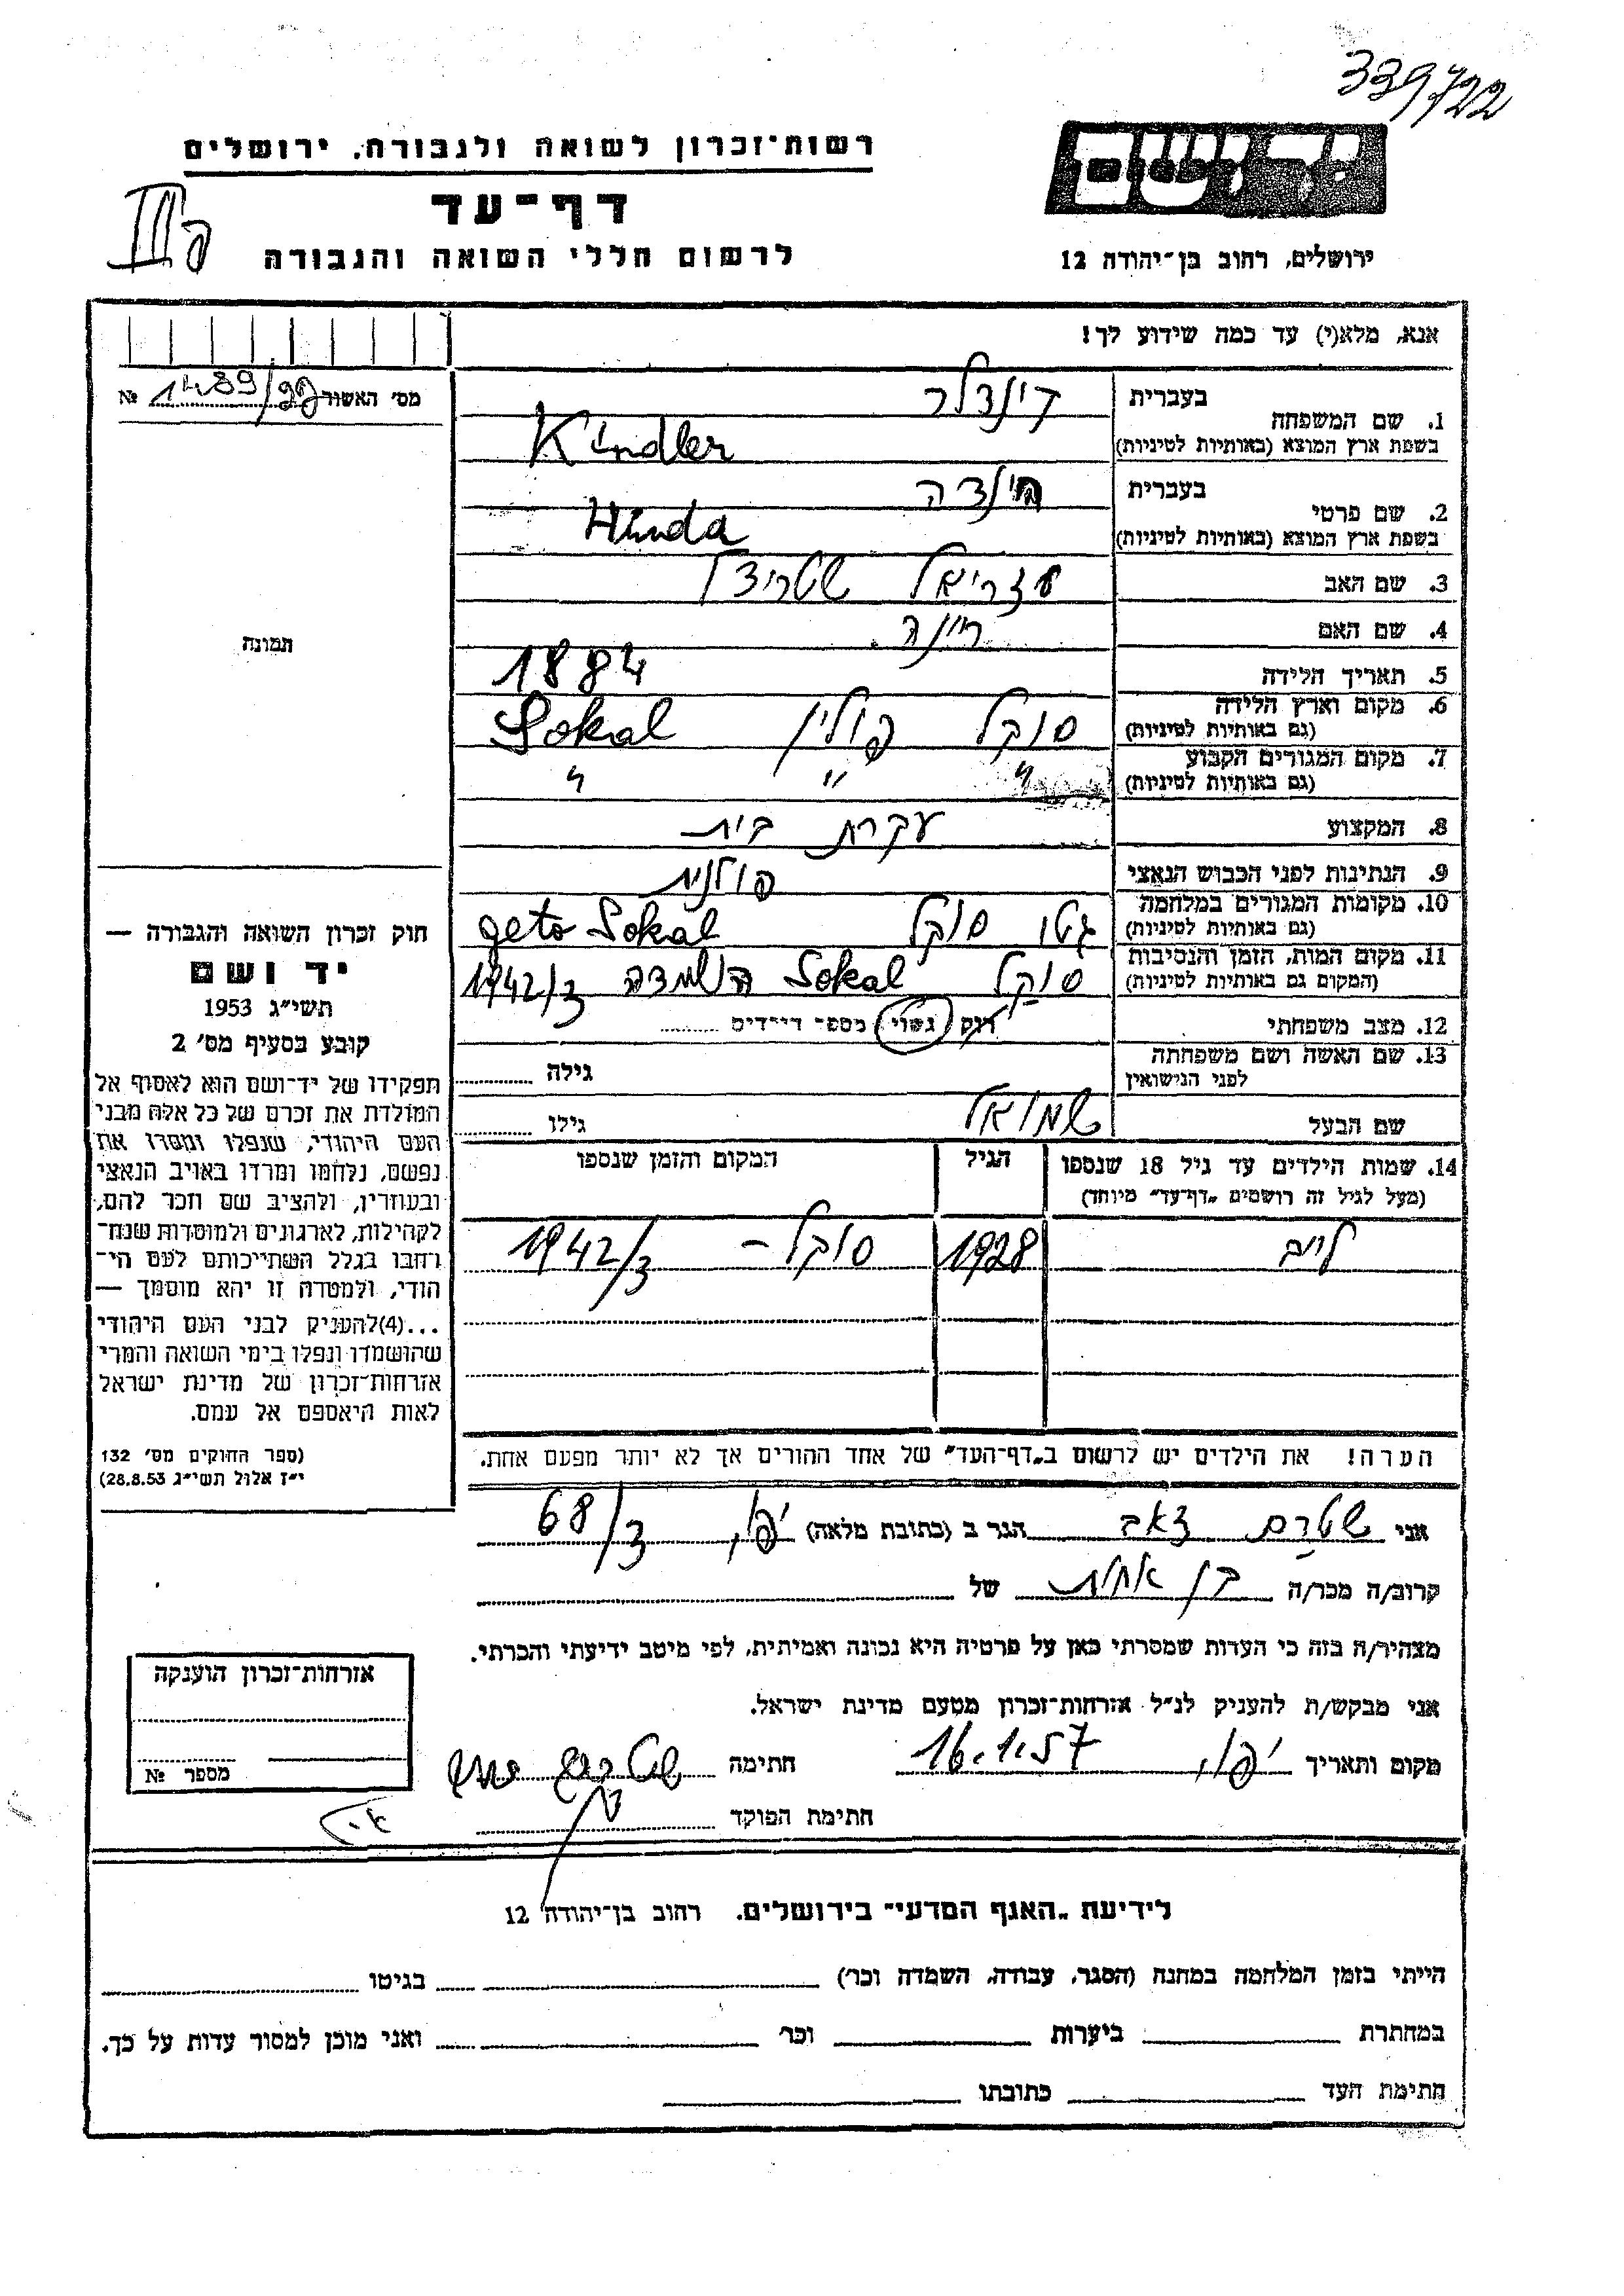 339722
יד ושם
רשות־זכרון לשואה ולגבורה, ירושלים
דף־עד
לרשום חללי השואה והגבורה
ירושלים, רחוב בן־יהודה 12
אנא, מלא(י) עד כמה שידוע לך!
מס׳ האשור 1489/ №
1. שם המשפחה
בעברית קינדלר
בשפת ארץ המוצא (באותיות לטיניות) Kindler
2. שם פרטי
בעברית הינדה
בשפת ארץ המוצא (באותיות לטיניות) Hinda
3. שם האב עזריאל
4. שם האם ריינה
5. תאריך הלידה 1884
6. מקום וארץ הלידה סוקל פולין Sokal
(גם באותיות לטיניות)
7. מקום המגורים הקבוע " " "
(גם באותיות לטיניות)
8. המקצוע עקרת בית
9. הנתינות לפני הכבוש הנאצי פולנית
10. מקומות המגורים במלחמה גטו סוקל geto Sokal
(גם באותיות לטיניות)
11. מקום המות, הזמן והנסיבות סוקל Sokal השמדה 1942/3
(המקום גם באותיות לטיניות)
12. מצב משפחתי רווק נשוי מספר ילדים
13. שם האשה ושם משפחתה
לפני הנישואין גילה
שם הבעל שמואל גילו
14. שמות הילדים עד גיל 18 שנספו הגיל המקום והזמן שנספו
(מעל לגיל זה רושמים „דף־עד״ מיוחד)
לייב 1928 סוקל – 1942/3
הערה! את הילדים יש לרשום ב„דף־העד״ של אחד ההורים אך לא יותר מפעם אחת.
תמונה
חוק זכרון השואה והגבורה —
יד ושם
תשי״ג 1953
קובע בסעיף מס׳ 2
תפקידו של יד־ושם הוא לאסוף אל
המולדת את זכרם של כל אלה מבני
העם היהודי, שנפלו ומסרו את
נפשם, נלחמו ומרדו באויב הנאצי
ובעוזריו, ולהציב שם וזכר להם,
לקהילות, לארגונים ולמוסדות שנח־
רבו בגלל השתייכותם לעם הי־
הודי, ולמטרה זו יהא מוסמך —
...(4)להעניק לבני העם היהודי
שהושמדו ונפלו בימי השואה והמרי
אזרחות־זכרון של מדינת ישראל
לאות היאספם אל עמם.
(ספר החוקים מס׳ 132
י״ז אלול תשי״ג 28.8.53)
אני שטרם זאב הגר ב (כתובת מלאה) יפו, 68/3
קרוב/ה מכר/ה בן אחות של
מצהיר/ה בזה כי העדות שמסרתי כאן על פרטיה היא נכונה ואמיתית, לפי מיטב ידיעתי והכרתי.
אני מבקש/ת להעניק לנ״ל אזרחות־זכרון מטעם מדינת ישראל.
מקום ותאריך יפו, 16.1.57 חתימה
חתימת הפוקד
אזרחות־זכרון הוענקה
מספר №
לידיעת „האגף המדעי״ בירושלים. רחוב בן־יהודה 12
הייתי בזמן המלחמה במחנה (הסגר, עבודה, השמדה וכו׳) בגיטו
במחתרת ביערות וכו׳ ואני מוכן למסור עדות על כך.
חתימת העד כתובתו